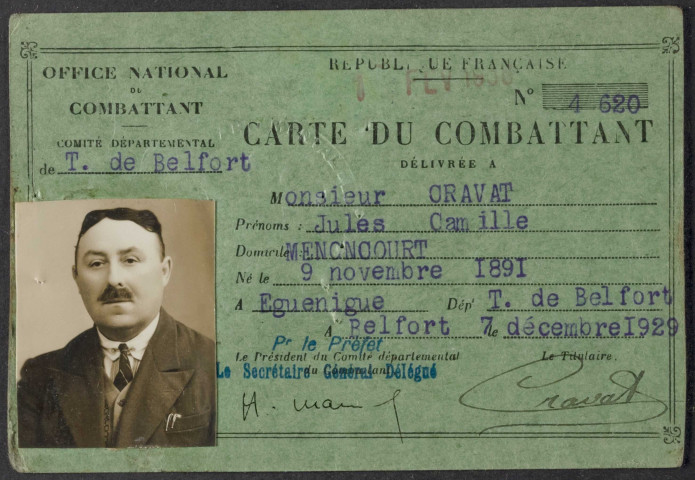 OFFICE NATIONAL
DU
COMBATTANT
COMITÉ DÉPARTEMENTAL
de T. de Belfort
RÉPUBLIQUE FRANÇAISE
1 FEV 1930
N° 4 620
CARTE DU COMBATTANT
DÉLIVRÉE A
Monsieur CRAVAT
Prénoms : Jules Camille
Domicile MENONCOURT
Né le 9 novembre 1891
A Eguenigue Dépt T. de Belfort
A Belfort 7 le décembre 1929
Pr le Préfet
Le Président du Comité départemental
du Combattant
Le Secrétaire Général Délégué
Le Titulaire.
Cravat